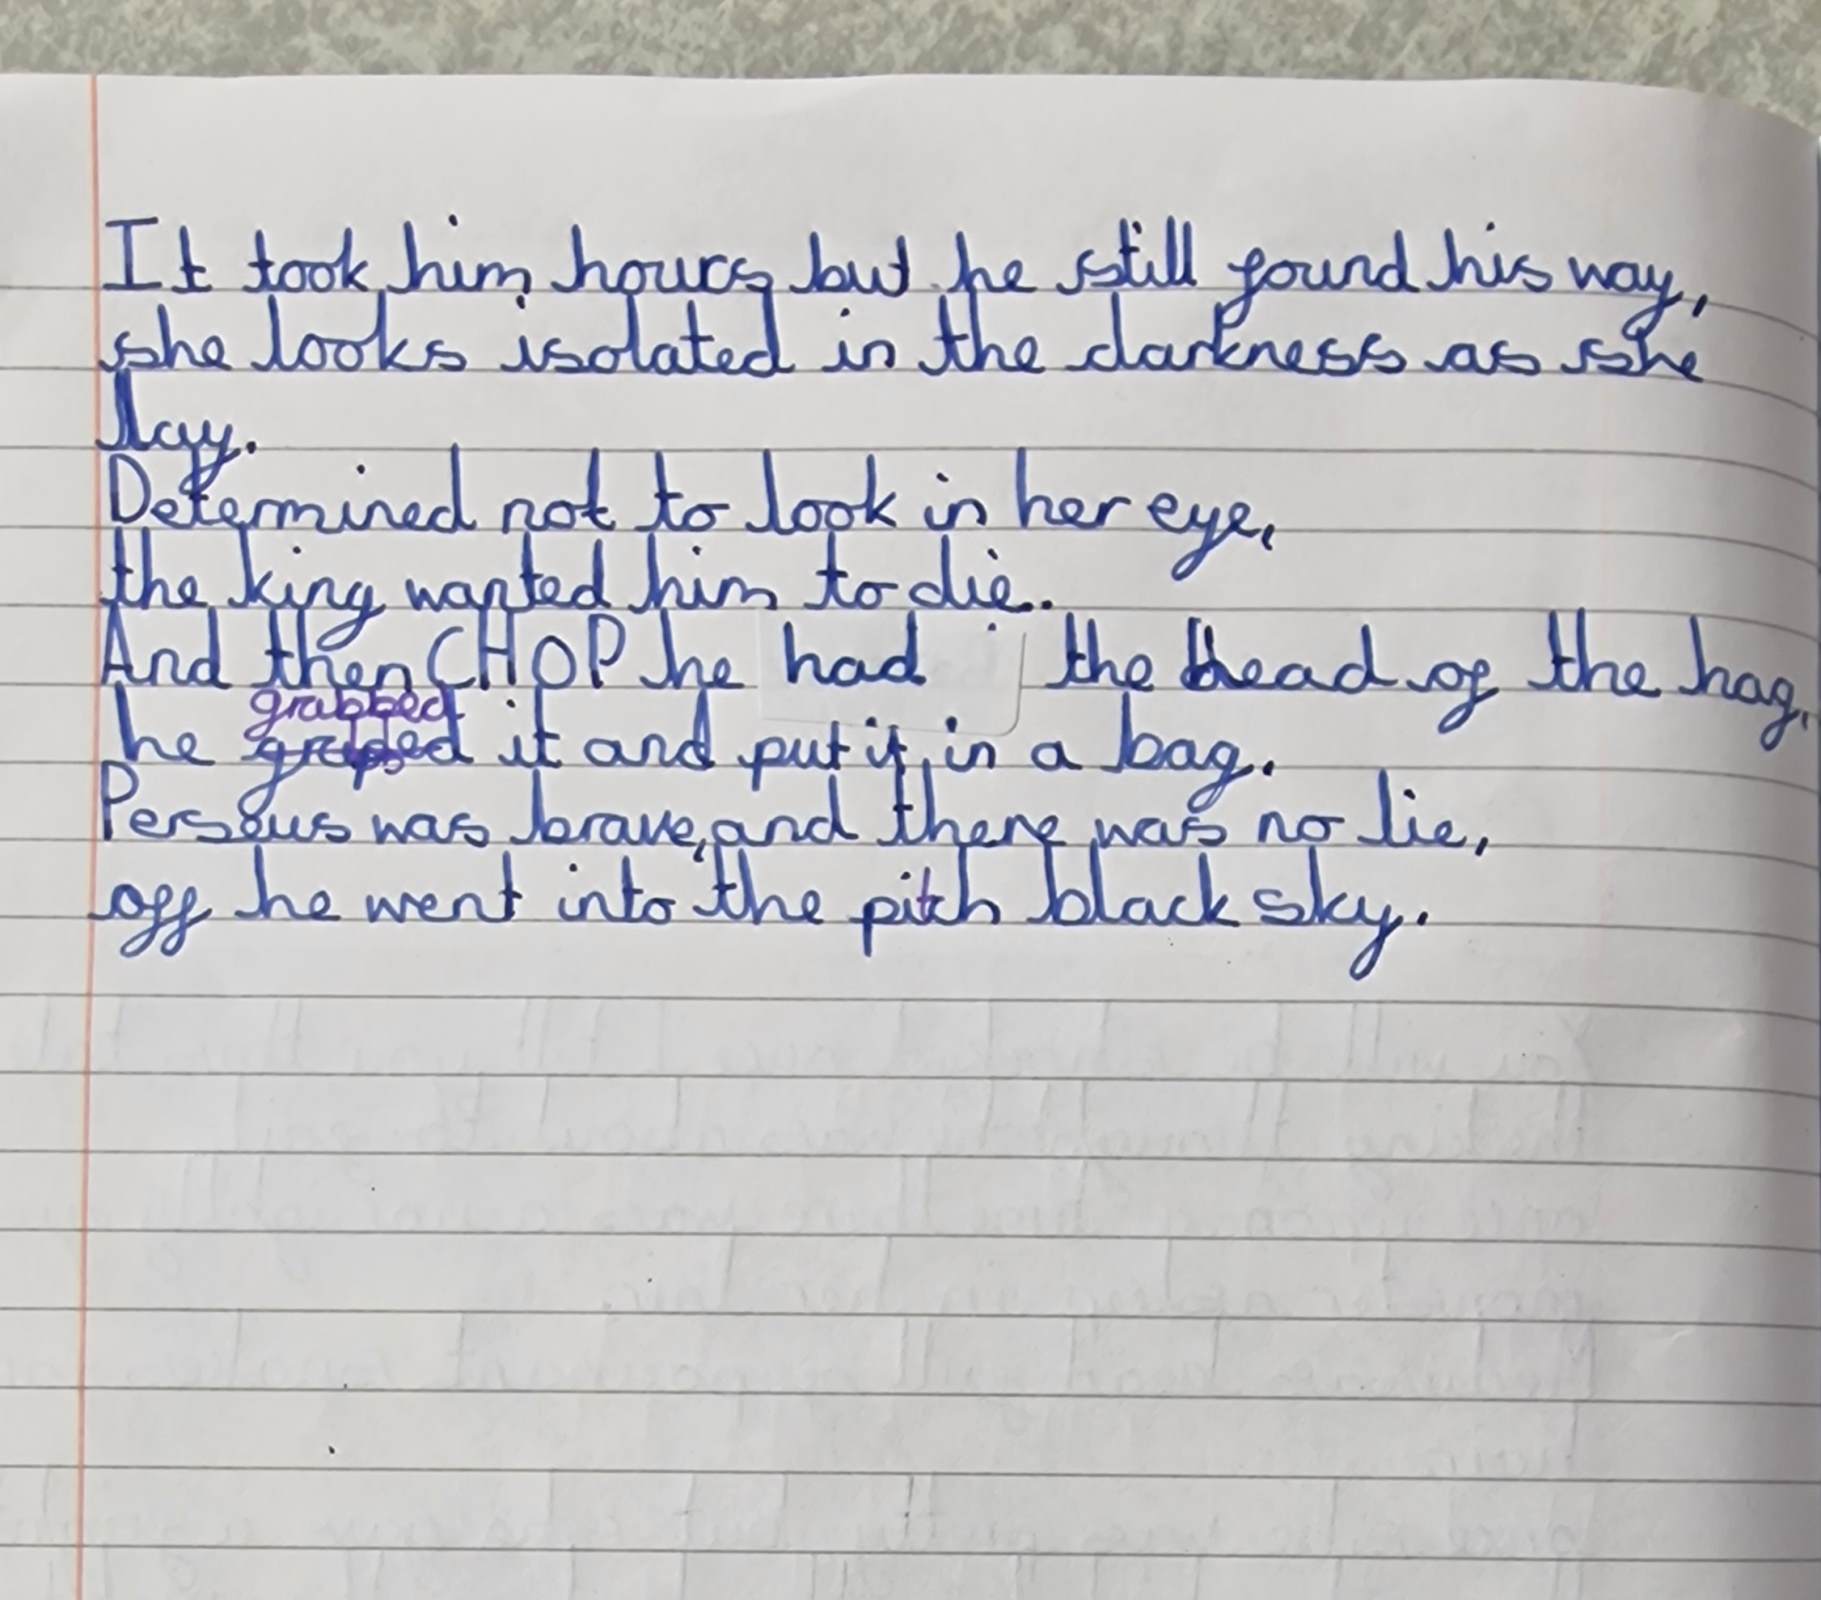 It took him hours but he still found his way,
she looks isolated in the darkness as she
lay.
Determined not to look in her eye,
the king wanted him to die.
And then CHOP he had the head of the hag,
grabbed
he graped it and put it in a bag.
Perseus was brave, and there was no lie,
off he went into the pitch black sky.